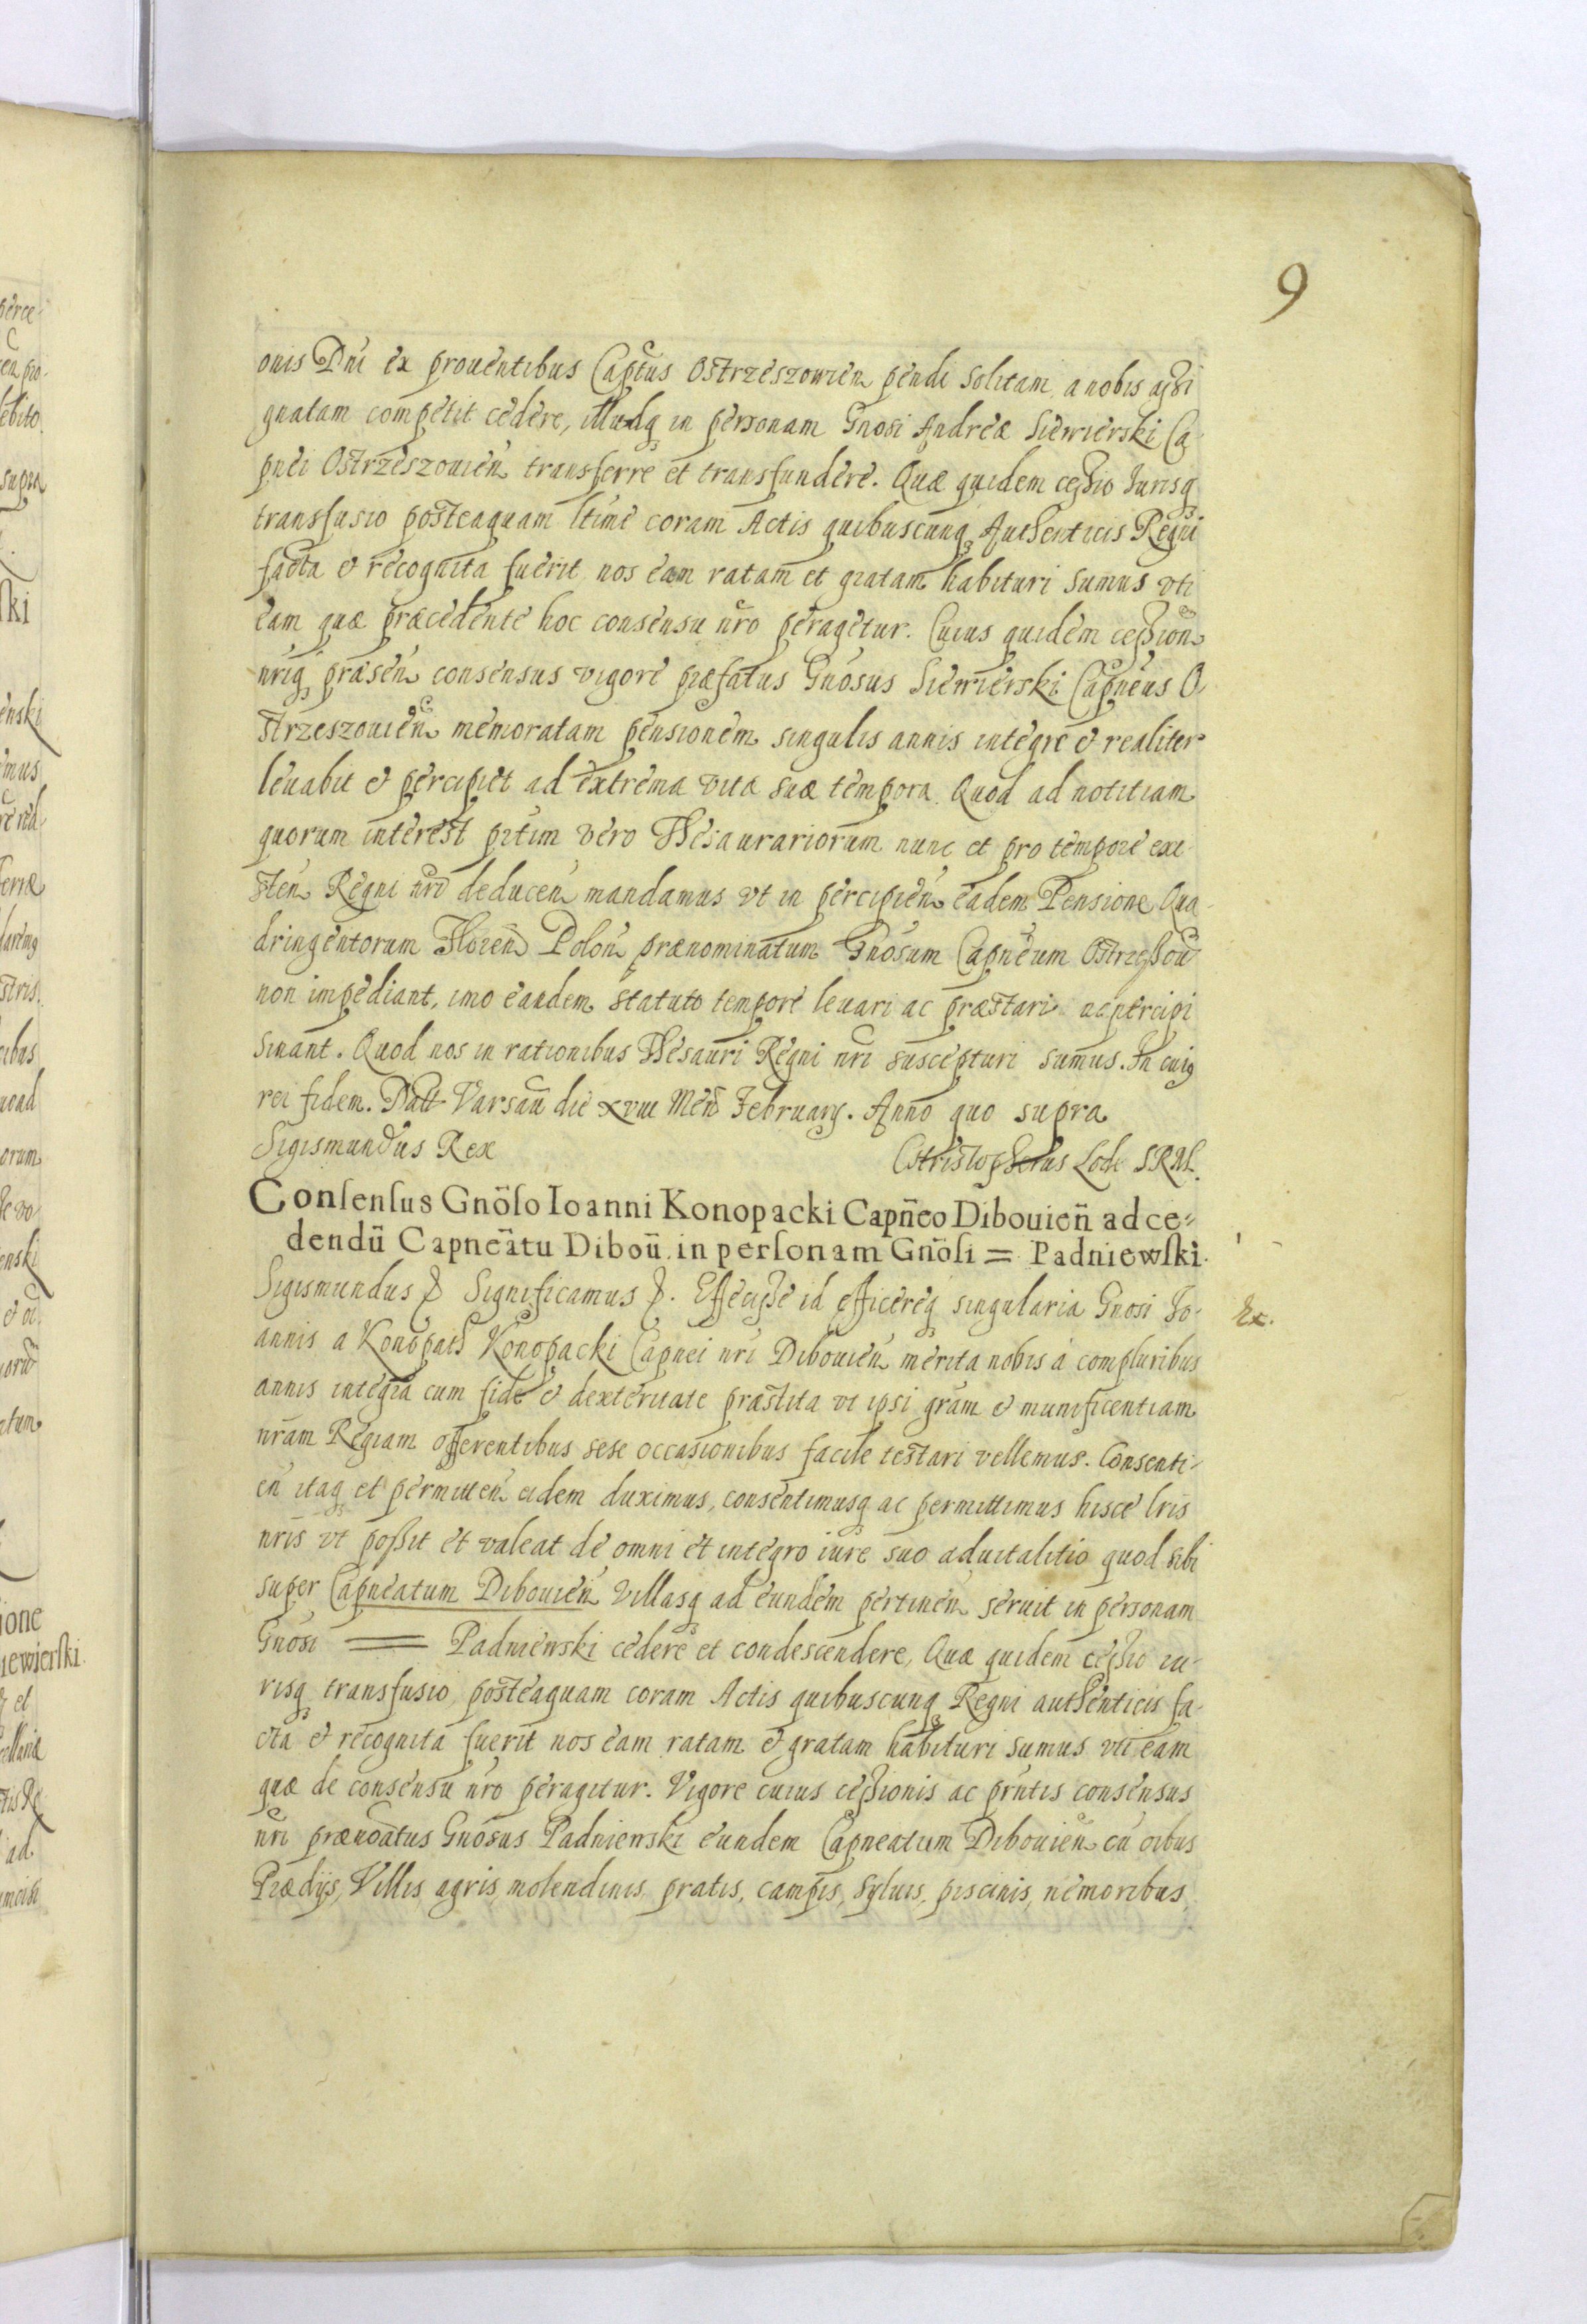 9
onis Dni ex prouentibus Captus Ostrzeszowien pendi solitam, a nobis assi
gnatam competit cedere, illudq in personam Gnosi Andreæ Siewierski Ca-
pnei Ostrzeszouien transferre et transfundere. Quæ quidem cessio Jurisq
transfusio posteaquam ltime coram Actis quibuscunq Authenticis Regni
facta & recognita fuerit nos eam ratam et gratam habituri sumus vti
eam quæ præcedente hoc consensu nro peragetur. Cuius quidem cession
nriq præsen consensus vigore præfatus Gnosus Siewierski Capneus O-
strzeszouien memoratam pensionem singulis annis integre & realiter
leuabit & percipiet ad extrema vitæ suæ tempora. Quod ad notitiam
quorum interest ptim vero Thesaurariorum nunc et pro tempore exi-
sten Regni nri deducen mandamus vt in percipien eadem Pensione Qua-
dringentorum Floren Polon prænominatum Gnosum Capneum Ostrzessou
non impediant, imo eandem statuto tempore leuari ac præstari ac percipi
sinant. Quod nos in rationibus Thesauri Regni nri suscepturi sumus. In cuiq
rei fidem. Datt Varsau die xvii Men February. Anno quo supra
Sigismundus Rex
Christopherus Lode SRM.
Conſenſus Gnöſo Ioanni Konopacki Capñeo Dibouieñ ad ce=
dendū Capneātu Diboū in perſonam Gnöſi = Padniewſki.
Sigismundus & Significamus &. Effecisse id efficereq singularia Gnosi Jo-
Ex.
annis a Konopath Konopacki Capnei nri Dibouien merita nobis a compluribus
annis integra cum fide & dexteritate præstita vt ipsi gram & munificentiam
nram Regiam offerentibus sese occasionibus facile testari vellemus. Consenti-
en itaq et permitten eidem duximus, consentimusq ac permittimus hisce lris
nris vt possit et valeat de omni et integro iure suo aduitalitio quod sibi
super Capneatum Dibouien Villasq ad eundem pertinen seruit in personam
Gnosi = Padniewski cedere et condescendere, Quæ quidem cessio iu-
risq transfusio, posteaquam coram Actis quibuscunq Regni authenticis fa-
cta & recognita fuerit nos eam ratam & gratam habituri sumus vti eam
quæ de consensu nro peragitur. Vigore cuius cessionis ac prntis consensus
nri prænoatus Gnosus Padniewski eundem Capneatum Dibouien cu oibus
Prædijs, Villis agris, molendinis, pratis, campis, syluis, piscinis, nemoribus,